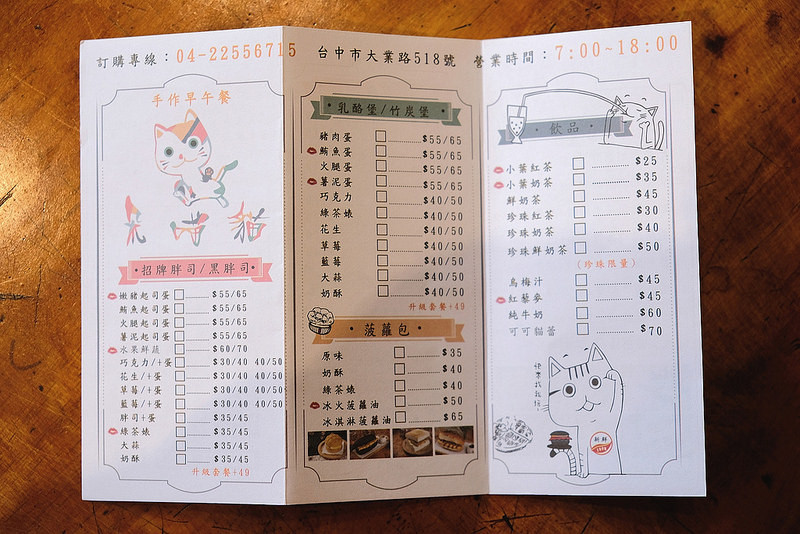 訂購專線：04-22556715 台中市大業路518號 營業時間：7:00~18:00
手作早午餐
招牌胖司/黑胖司
嫩豬起司蛋 $55/65
鮪魚起司蛋 $55/65
火腿起司蛋 $55/65
薯泥起司蛋 $55/65
水果鮮蔬 $60/70
巧克力/+蛋 $30/40 40/50
花生/+蛋 $30/40 40/50
草莓/+蛋 $30/40 40/50
藍莓/+蛋 $30/40 40/50
胖司+蛋 $35/45
綠茶婊 $35/45
大蒜 $35/45
奶酥 $35/45
升級套餐+49
乳酪堡/竹炭堡
豬肉蛋 $55/65
鮪魚蛋 $55/65
火腿蛋 $55/65
薯泥蛋 $55/65
巧克力 $40/50
綠茶婊 $40/50
花生 $40/50
草莓 $40/50
藍莓 $40/50
大蒜 $40/50
奶酥 $40/50
升級套餐+49
菠蘿包
原味 $35
奶酥 $40
綠茶婊 $40
冰火菠蘿油 $50
冰淇淋菠蘿油 $65
飲品
小葉紅茶 $25
小葉奶茶 $35
鮮奶茶 $45
珍珠紅茶 $30
珍珠奶茶 $40
珍珠鮮奶茶 $50
(珍珠限量)
烏梅汁 $45
紅藜麥 $45
純牛奶 $60
可可貓蕾 $70
新鮮